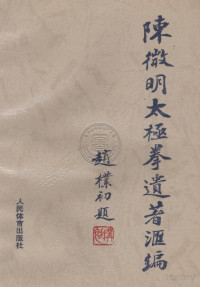 陳微明太極拳遺著滙編
趙樸初題
人民体育出版社